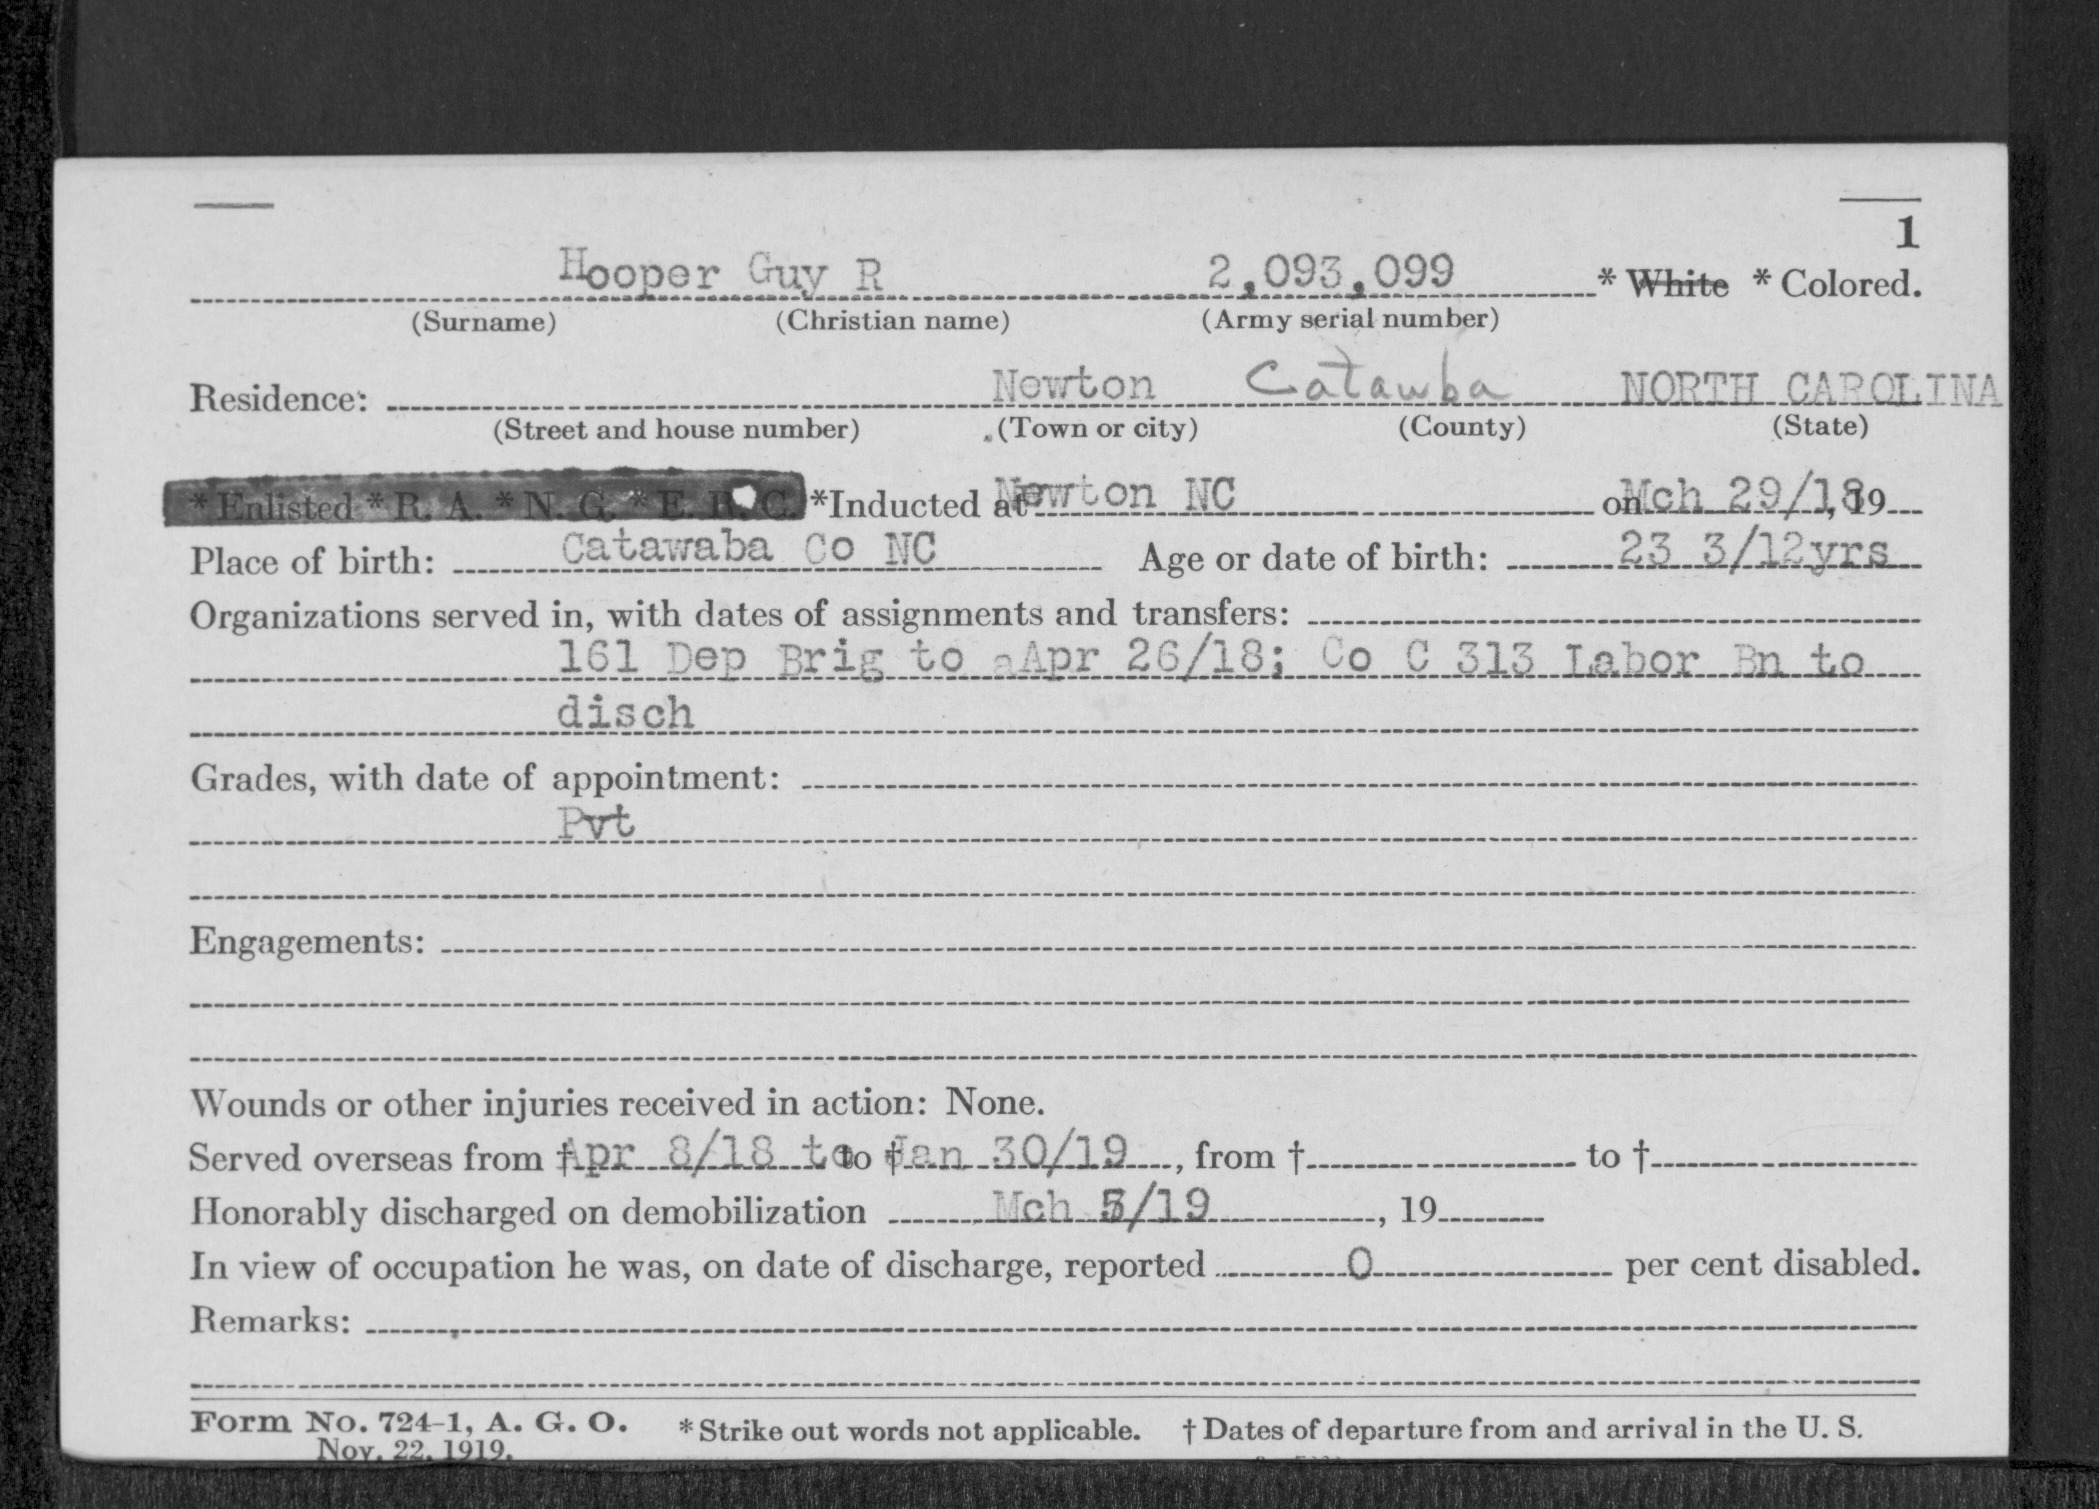 1
Hooper Guy R 2,093,099 * White * Colored.
(Surname) (Christian name) (Army serial number)
Residence: Newton Catawba NORTH CAROLINA
(Street and house number) (Town or city) (County) (State)
* Enlisted * R. A. * N. G. * E. R. C. *Inducted at Newton NC on Mch 29/18, 19
Place of birth: Catawaba Co NC Age or date of birth: 23 3/12yrs
Organizations served in, with dates of assignments and transfers:
161 Dep Brig to aApr 26/18; Co C 313 Labor Bn to
disch
Grades, with date of appointment:
Pvt
Engagements:
Wounds or other injuries received in action: None.
Served overseas from † Apr 8/18 to to † Jan 30/19, from † to †
Honorably discharged on demobilization Mch 5/19, 19
In view of occupation he was, on date of discharge, reported 0 per cent disabled.
Remarks:
Form No. 724-1, A. G. O. * Strike out words not applicable. † Dates of departure from and arrival in the U. S.
Nov. 22, 1919.